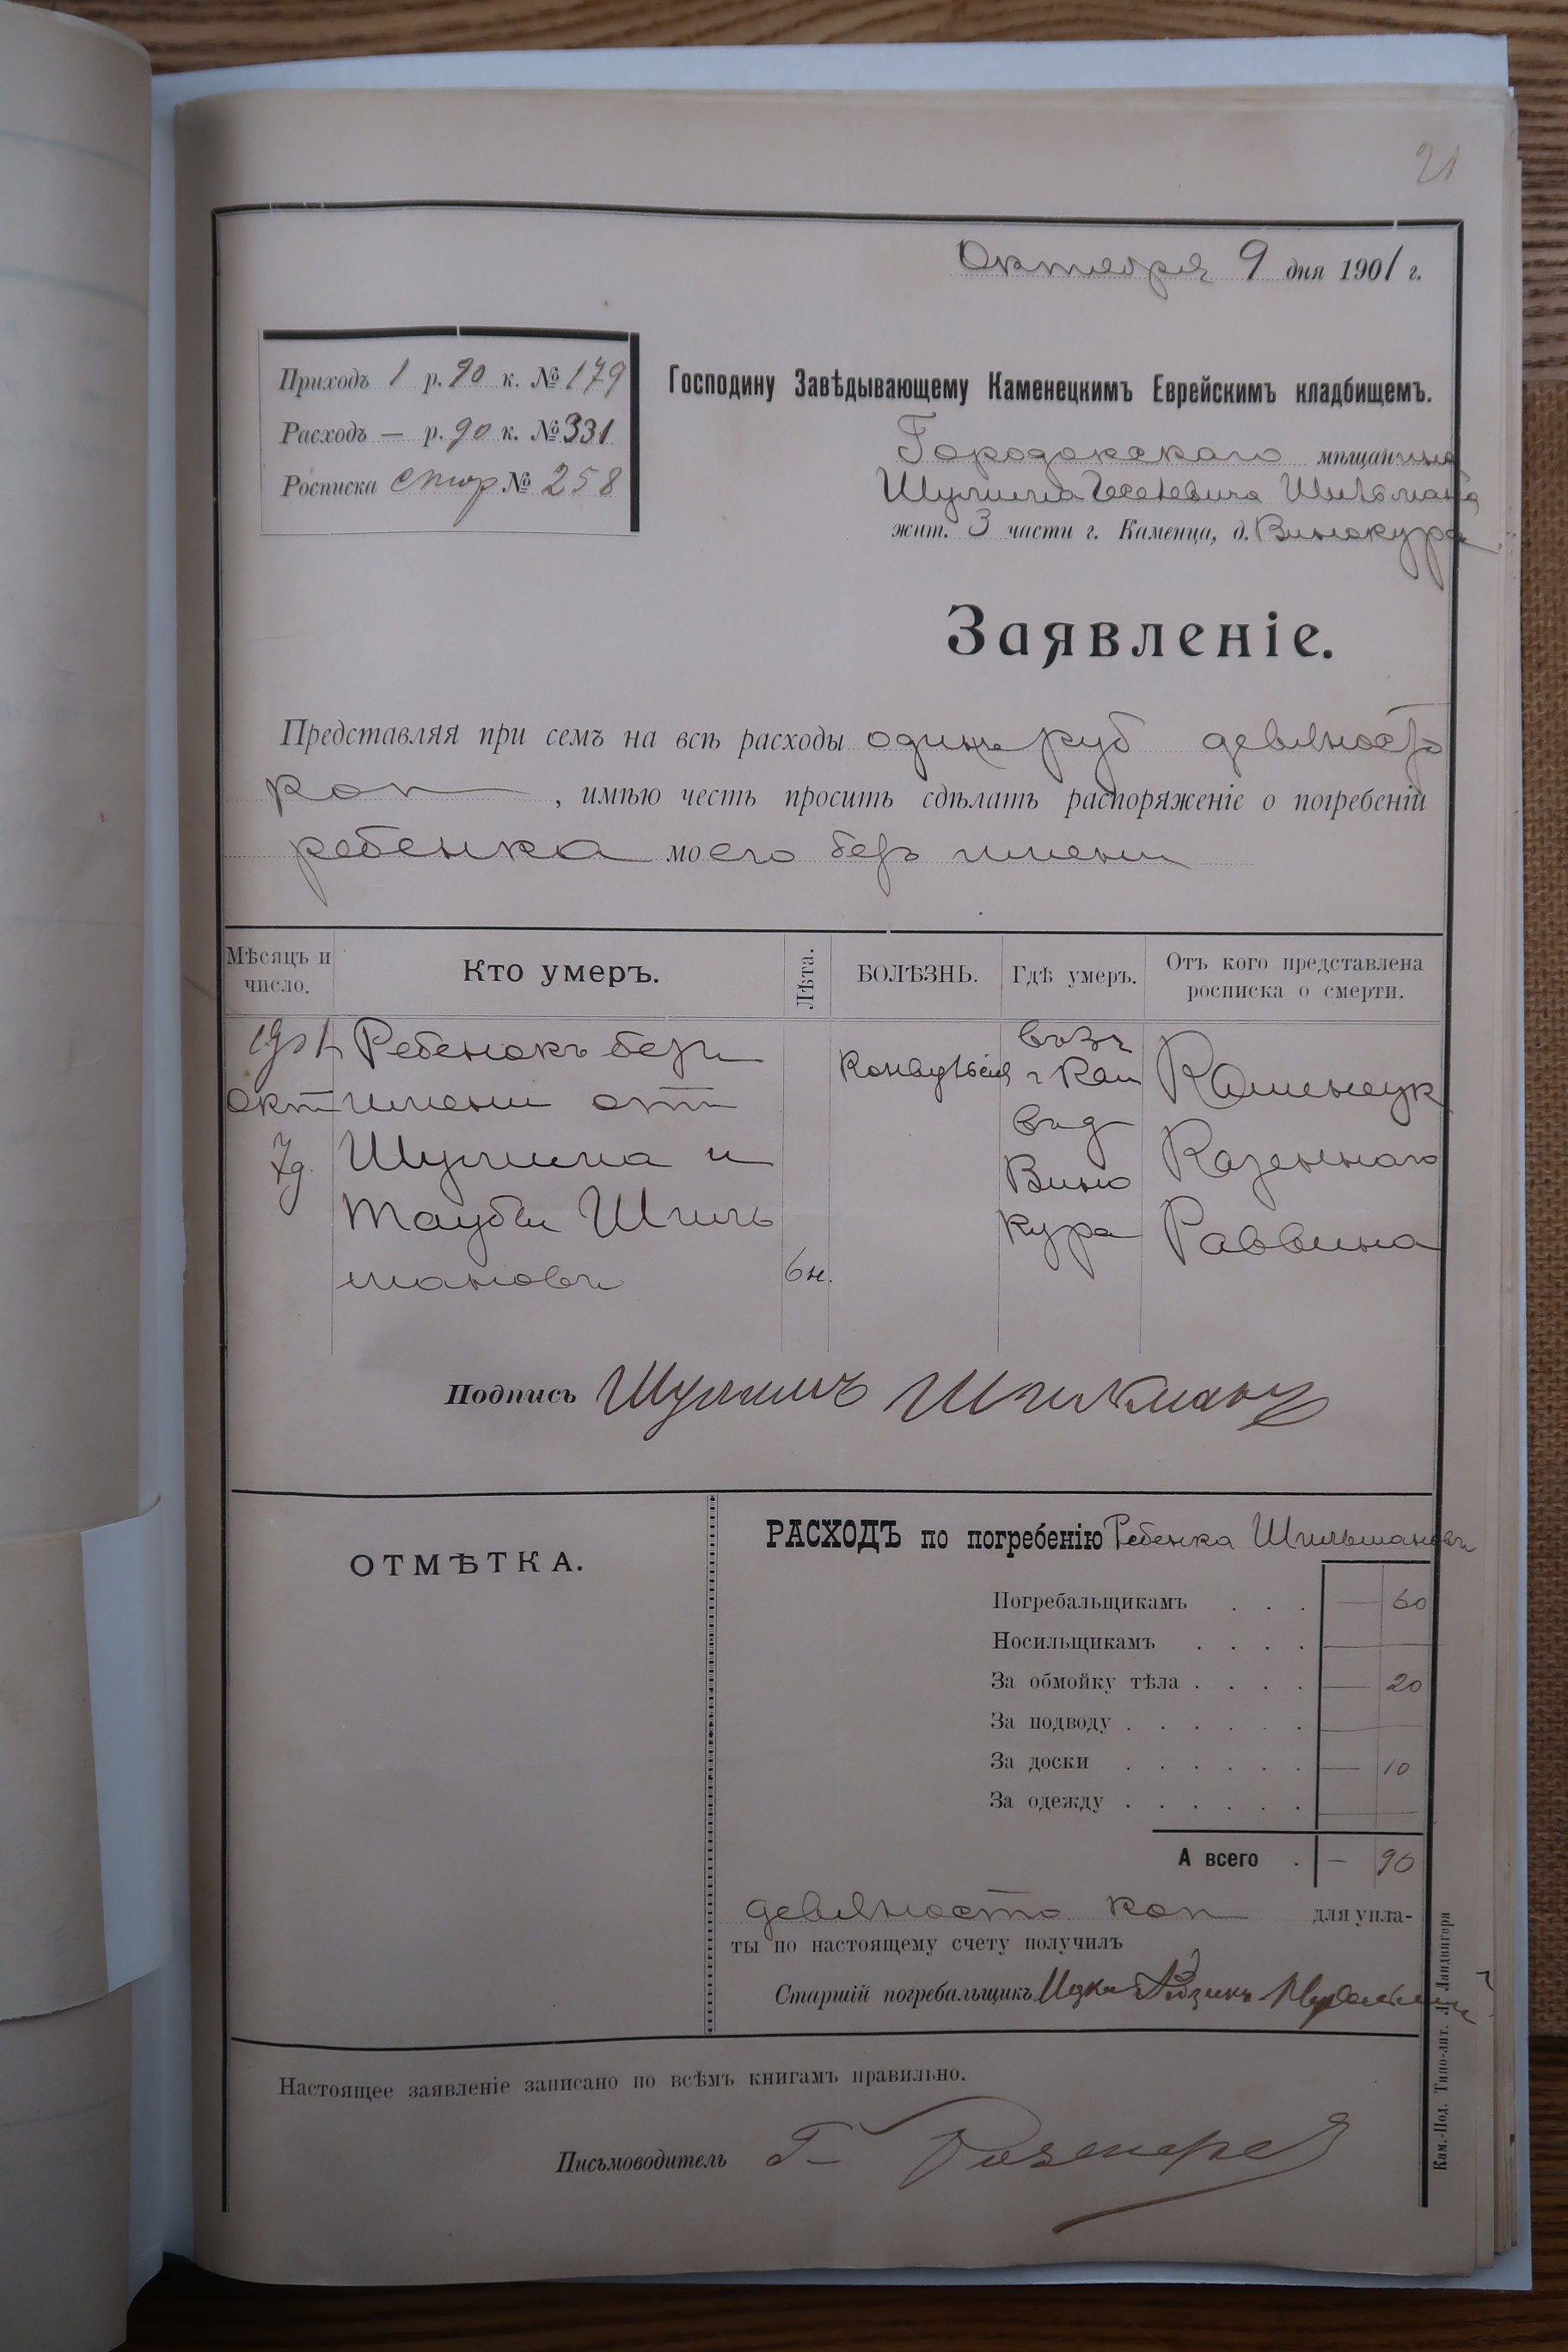 21
Октября 9 дня 1901 г.
Приходъ 1 р. 90 к. № 179
Расходъ — р. 90 к. № 331
Росписка стор № 258
Господину Завѣдывающему Каменецкимъ Еврейскимъ кладбищемъ.
Городокскаго мѣщанина
Шулима Шильмана
жит. 3 части г. Каменца, д. Винокура
Заявленіе.
Представляя при семъ на всѣ расходы одинъ руб девяносто
коп , имѣю честь просить сдѣлать распоряженіе о погребеніи
ребенка моего безъ имени
Мѣсяцъ и число.
Кто умеръ.
Лѣта.
БОЛѢЗНЬ.
Гдѣ умеръ.
Отъ кого представлена росписка о смерти.
1901 Ребенокъ безъ
окт имени отъ
7д. Шулима и
Таубы Шиль
мановъ
6н.
Конвульсія
въ 3 ч
г Кам
в д
Вино
кура
Каменецк
Казеннаго
Раввина
Подпись Шулимъ Шильманъ
ОТМѢТКА.
РАСХОДЪ по погребенію Ребенка Шильмановъ
Погребальщикамъ . . . — 60
Носильщикамъ . . . . —
За обмойку тѣла . . . . — 20
За подводу . . . . . —
За доски . . . . . . — 10
За одежду . . . . . . —
А всего . — 90
девяносто коп для упла-
ты по настоящему счету получилъ
Старшій погребальщикъ Ицко
Настоящее заявленіе записано по всѣмъ книгамъ правильно.
Письмоводитель Г
Кам.-Под. Типо-лит. Л. Ландвигера